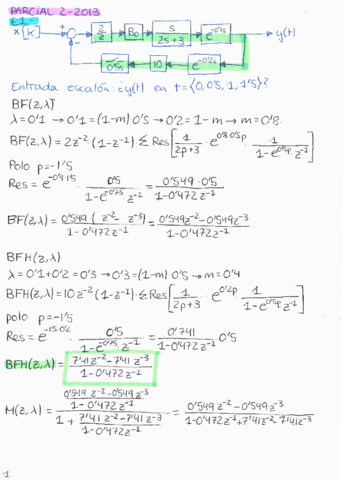 PARCIAL 2-2013
E1
x[k] + - 2/z B₀ s/(2s+3) e^-0'1s y(t)
0'5s 10 e^-0'2s
Entrada escalón: ¿y(t) en t=(0, 0'5, 1, 1'5)?
BF(z,λ)
λ=0'1 → 0'1=(1-m) 0'5 → 0'2=1-m → m=0'8.
BF(z,λ) = 2z⁻² (1-z⁻¹) Σ Res[1/(2p+3) · e^0'8·0'5p · 1/(1-e^0'5p z⁻¹)]
Polo p=-1'5
Res = e^-0'4·1'5 · 0'5/(1-e^-0'75 z⁻¹) = 0'549·0'5/(1-0'472z⁻¹)
BF(z,λ) = 0'549(z⁻² z⁻³)/(1-0'472z⁻¹) = (0'549z⁻²-0'549z⁻³)/(1-0'472z⁻¹)
BFH(z,λ)
λ=0'1+0'2=0'3 → 0'3=(1-m) 0'5 → m=0'4
BFH(z,λ) = 10z⁻² (1-z⁻¹)·ΣRes[1/(2p+3) · e^0'2p · 1/(1-e^0'5p z⁻¹)]
polo p=-1'5
Res = e^-1'5·0'2 · 0'5/(1-e^-0'75 z⁻¹) = 0'741/(1-0'472z⁻¹) 0'5
BFH(z,λ) = (7'41z⁻²-7'41z⁻³)/(1-0'472z⁻¹)
M(z,λ) = ((0'549z⁻²-0'549z⁻³)/(1-0'472z⁻¹))/(1+(7'41z⁻²-7'41z⁻³)/(1-0'472z⁻¹)) = (0'549z⁻²-0'549z⁻³)/(1-0'472z⁻¹+7'41z⁻²-7'41z⁻³)
1